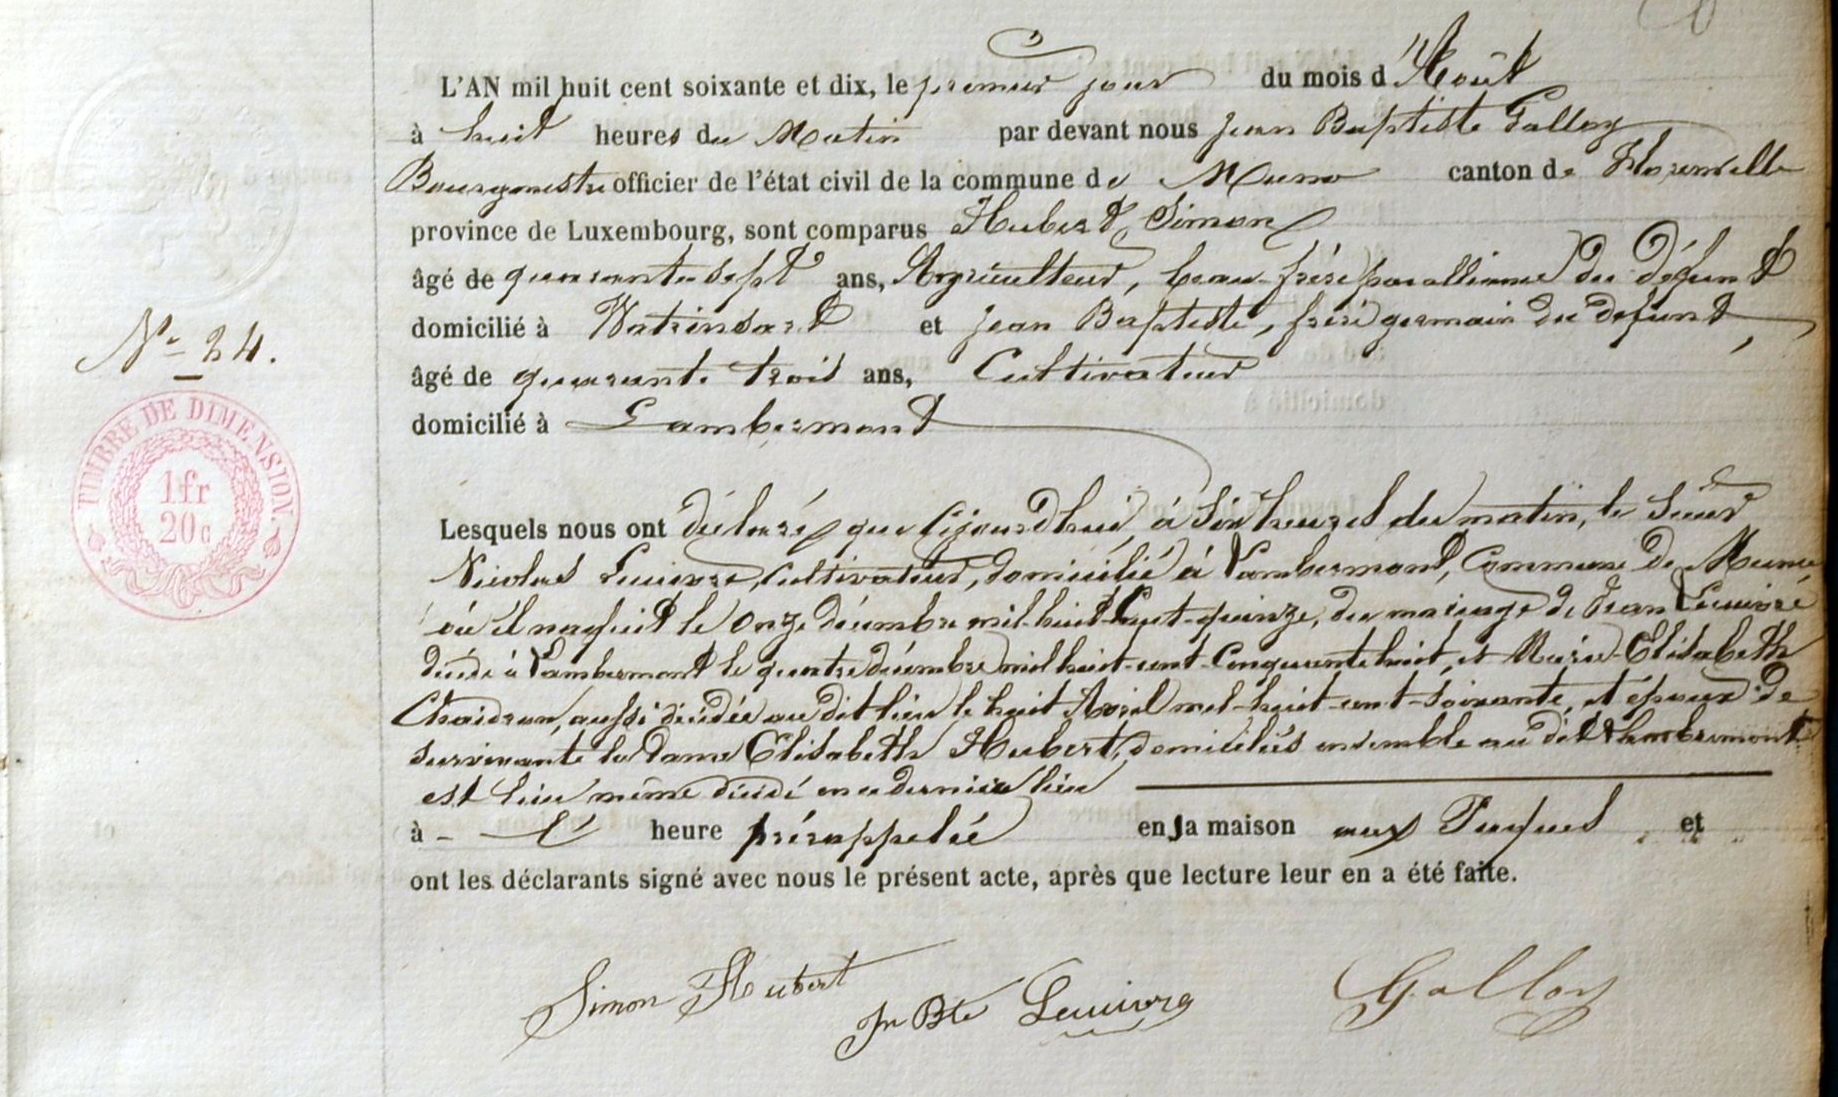 L'AN mil huit cent soixante et dix, le premier jour du mois d'Août
à huit heures du Matin par devant nous Jean Baptiste Galloy
Bourgmestre officier de l'état civil de la commune de Muno canton de Florenville
province de Luxembourg, sont comparus Hubert Simon
âgé de quarante sept ans, Agriculteur, beau-frère par alliance du défunt
N° 24.
domicilié à Watrinsart et Jean Baptiste, frère germain du défunt,
âgé de quarante trois ans, Cultivateur
domicilié à Lambermont
TIMBRE DE DIMENSION.
1fr
20c
Lesquels nous ont déclaré que cejourd'hui à six heures du matin, le sieur
Nicolas cultivateur, domicilié à Lambermont, Commune de Muno
où il naquit le onze décembre mil-huit-cent-quinze, du mariage de Jean
décédé à Lambermont le quatre décembre mil huit-cent-cinquante huit, et Marie-Elisabeth
aussi décédée au dit lieu le huit Avril mil-huit-cent-soixante, et époux de
survivante la dame Elisabeth Hubert, domiciliés ensemble au dit Lambermont
est lieu même décédé en ce dernier lieu
à - L' heure prérappelée en sa maison aux et
ont les déclarants signé avec nous le présent acte, après que lecture leur en a été faite.
Simon Hubert
Jn Bte
Galloy